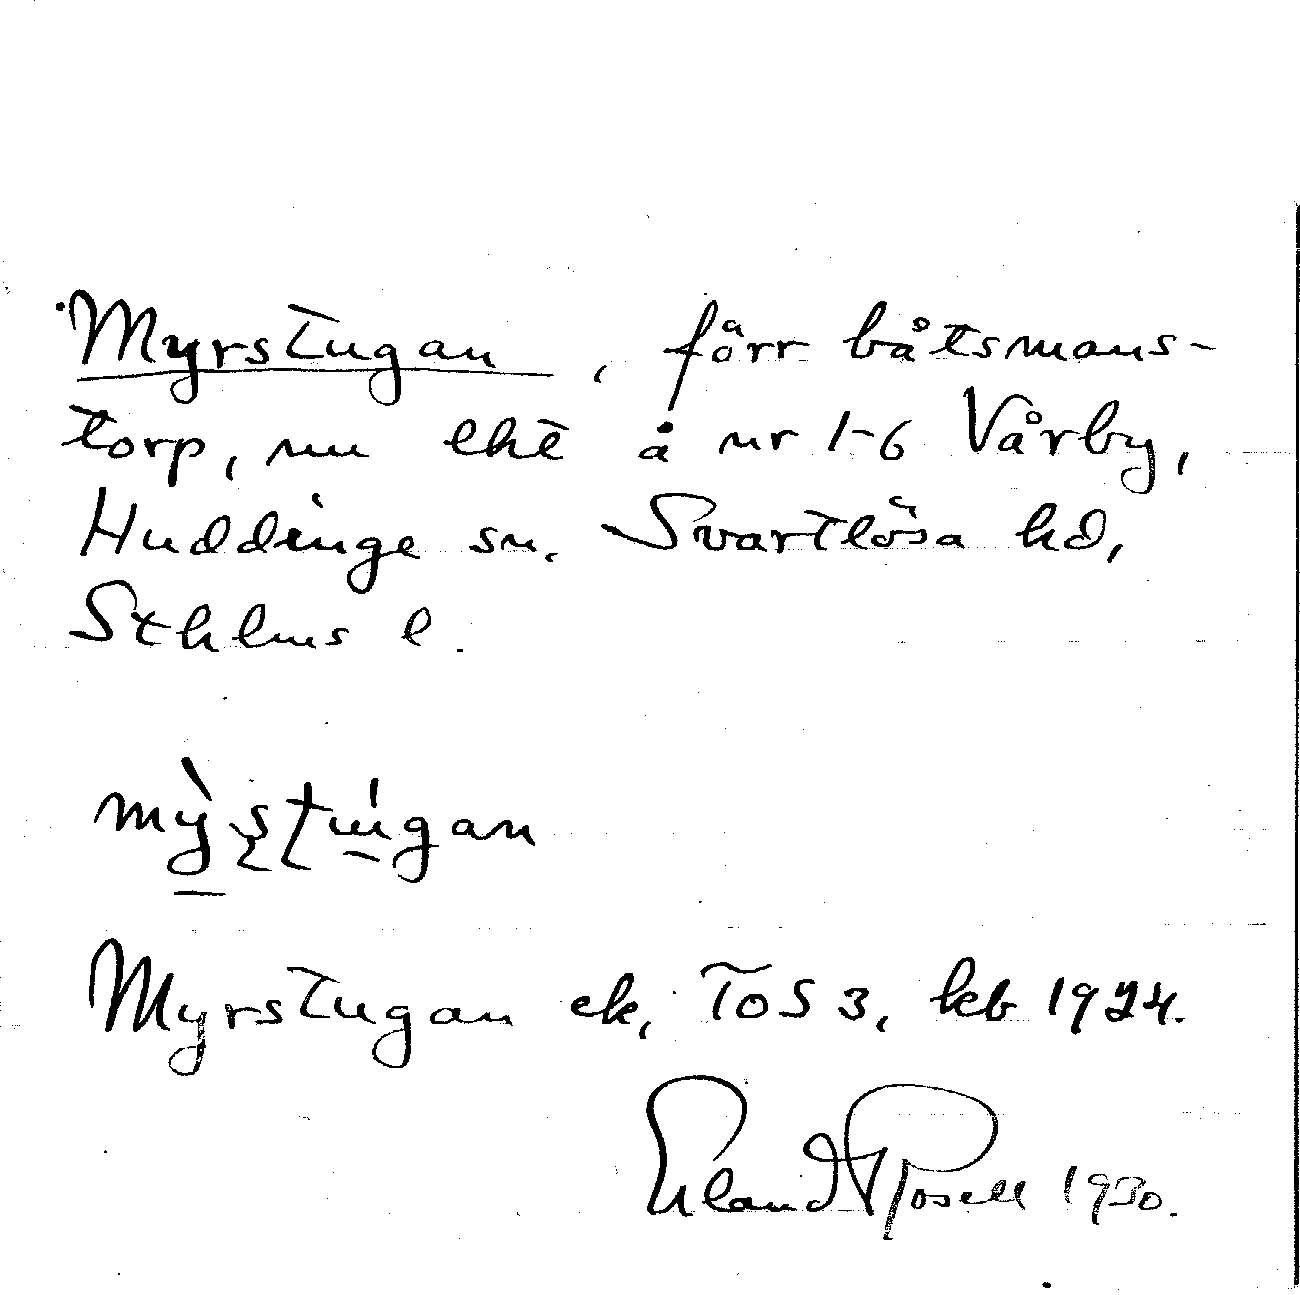 Myrstugan, förr båtsmans-
torp, nu lht å nr 1-6 Vårby,
Huddinge sn. Svartlösa hd,
Sthlms l.
mỳstugan
Myrstugan ek, ToS 3, kb 1924.
Erland Rosell 1930.